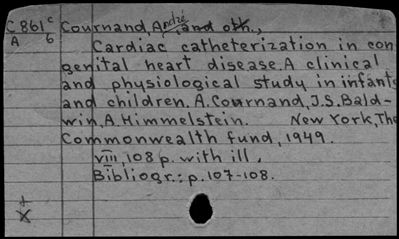 C861c Cournand, André, and oth.,
A 6 Cardiac catheterization in con
genital heart disease. A clinical
and physiological study in infants
and children. A. Cournand, J.S. Bald-
win, A. Himmelstein. New York, The
Commonwealth fund, 1949.
viii, 108 p. with ill.
Bibliogr.: p. 107-108.
+
X